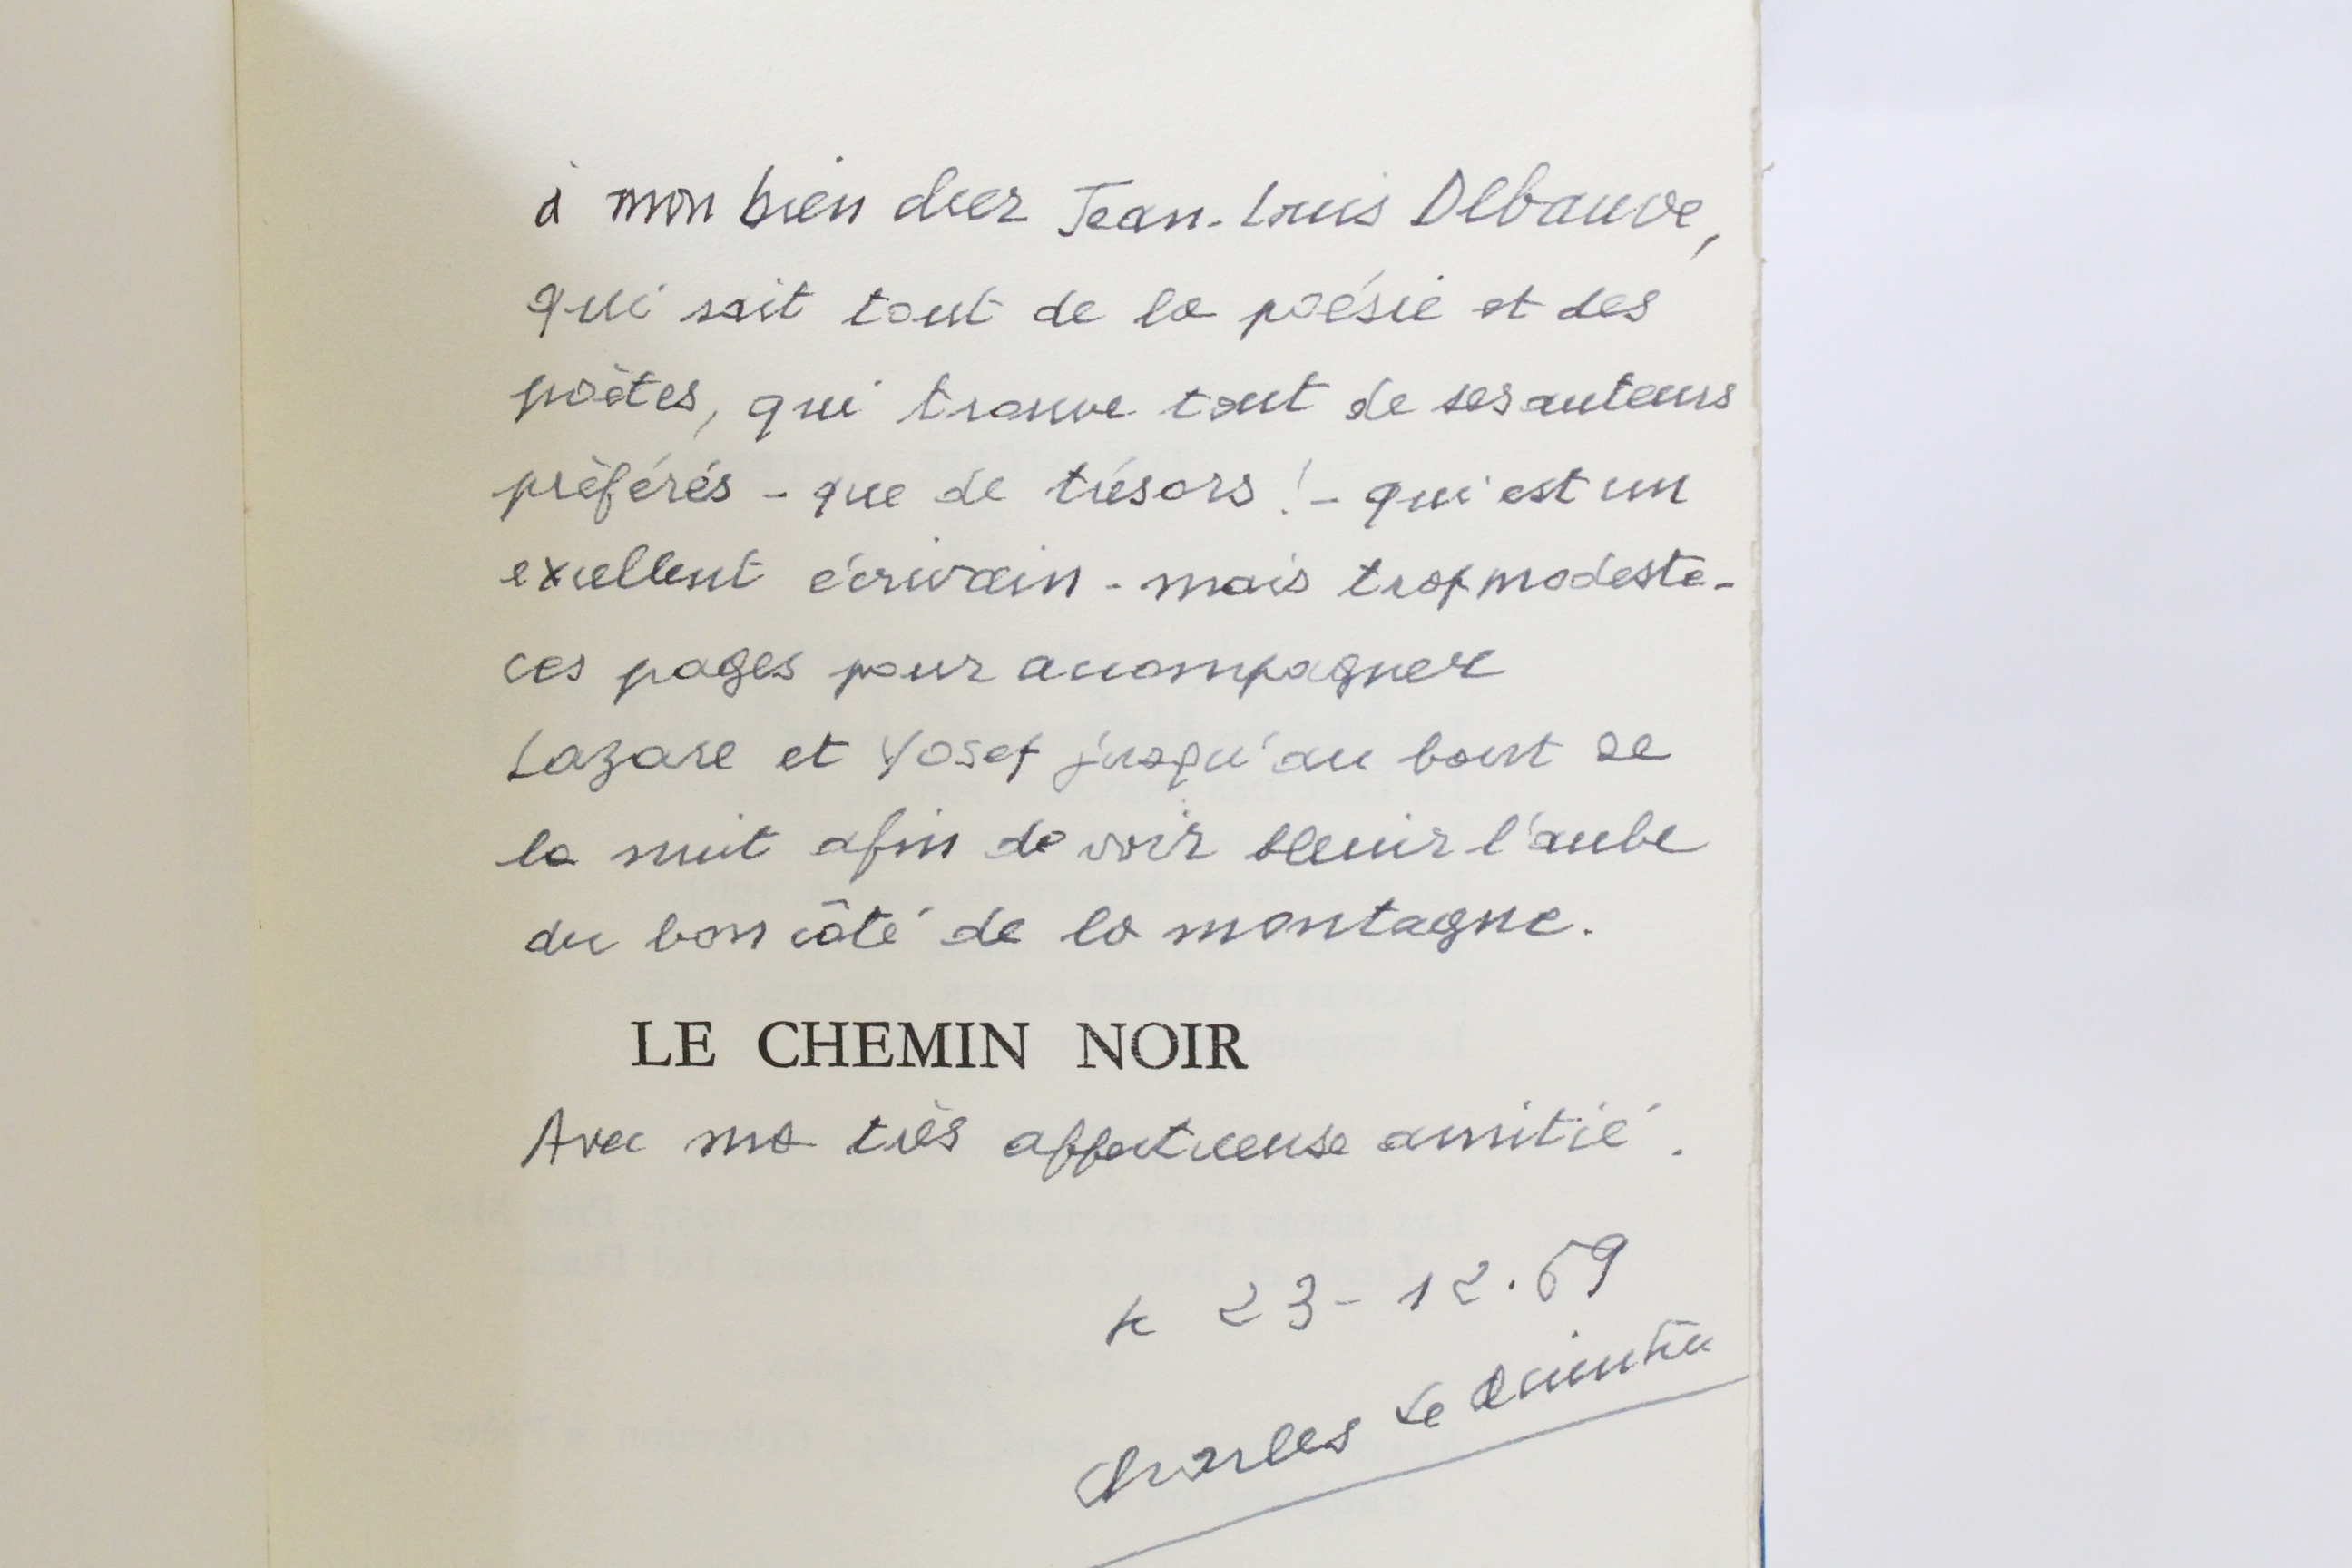 à mon bien cher Jean-Louis Debauve,
qui sait tout de la poésie et des
poètes, qui trouve tout de ses auteurs
préférés - que de trésors ! - qui est un
excellent écrivain - mais trop modeste -
ces pages pour accompagner
Lazare et Yosef jusqu'au bout de
la nuit afin de voir bleuir l'aube
du bon côté de la montagne.
LE CHEMIN NOIR
Avec ma très affectueuse amitié.
le 23-12.69
Charles Le Quintrec